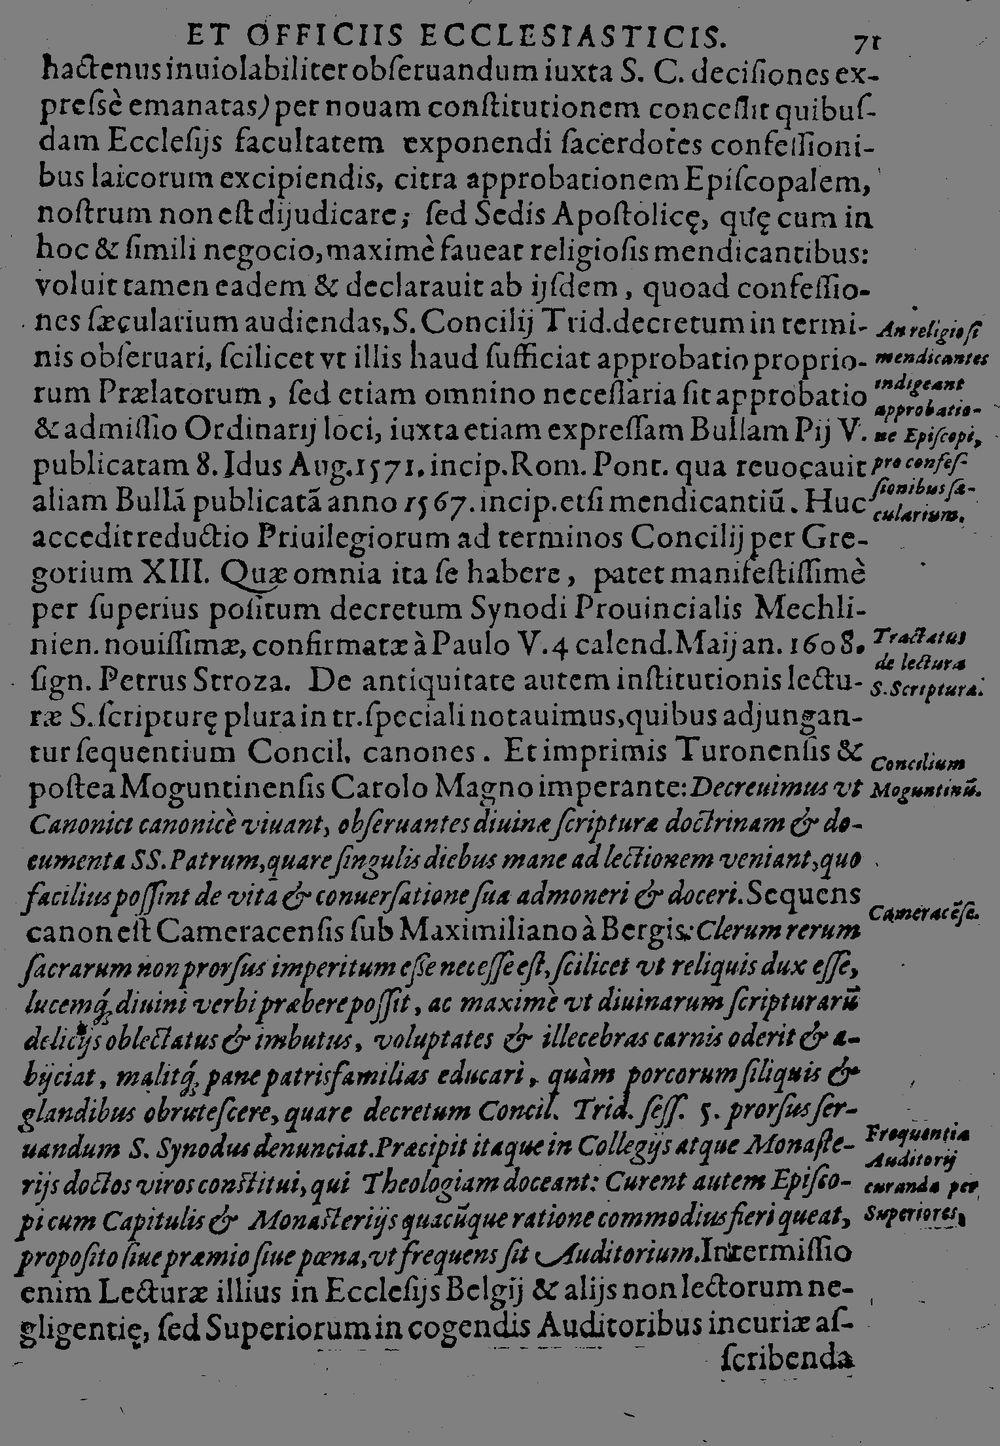 ET OFFICIIS ECCLESIASTICIS. 71
hactenus inuiolabiliter obſeruandum iuxta S. C. deciſiones ex-
preſsè emanatas) per nouam conſtitutionem conceſſit quibuſ-
dam Eccleſijs facultatem exponendi ſacerdotes confeſſioni-
bus laicorum excipiendis, citra approbationem Epiſcopalem,
noſtrum non eſt dijudicare; ſed Sedis Apoſtolicę, quę cum in
hoc & ſimili negocio, maximè faueat religioſis mendicantibus:
voluit tamen eadem & declarauit ab ijſdem, quoad confeſſio-
nes ſæcularium audiendas, S. Concilij Trid. decretum in termi-
nis obſeruari, ſcilicet vt illis haud ſufficiat approbatio proprio-
rum Prælatorum, ſed etiam omnino neceſſaria ſit approbatio
& admiſſio Ordinarij loci, iuxta etiam expreſſam Bullam Pij V.
publicatam 8. Idus Aug. 1571. incip. Rom. Pont. qua reuocauit
aliam Bullā publicatā anno 1567. incip. etſi mendicantiū. Huc
accedit reductio Priuilegiorum ad terminos Concilij per Gre-
gorium XIII. Quæ omnia ita ſe habere, patet manifeſtiſſimè
per ſuperius poſitum decretum Synodi Prouincialis Mechli-
nien. nouiſſimæ, confirmatæ à Paulo V. 4 calend. Maij an. 1608.
ſign. Petrus Stroza. De antiquitate autem inſtitutionis lectu-
ræ S. ſcripturę plura in tr. ſpeciali notauimus, quibus adjungan-
tur ſequentium Concil. canones. Et imprimis Turonenſis &
poſtea Moguntinenſis Carolo Magno imperante: Decreuimus vt
Canonici canonicè viuant, obſeruantes diuinæ ſcripturæ doctrinam & do-
cumenta SS. Patrum, quare ſingulis diebus mane ad lectionem veniant, quo
facilius poſſint de vitâ & conuerſatione ſua admoneri & doceri. Sequens
canon eſt Cameracenſis ſub Maximiliano à Bergis: Clerum rerum
ſacrarum non prorſus imperitum eſſe neceſſe eſt, ſcilicet vt reliquis dux eſſe,
lucemq́; diuini verbi præbere poſſit, ac maximè vt diuinarum ſcripturarū
delicijs oblectatus & imbutus, voluptates & illecebras carnis oderit & a-
bijciat, malitq́; pane patrisfamilias educari, quàm porcorum ſiliquis &
glandibus obruteſcere, quare decretum Concil. Trid. ſeſſ. 5. prorſus ſer-
uandum S. Synodus denunciat. Præcipit itaque in Collegijs atque Monaſte-
rijs doctos viros conſtitui, qui Theologiam doceant: Curent autem Epiſco-
pi cum Capitulis & Monaſterijs quacūque ratione commodius fieri queat,
propoſito ſiue præmio ſiue pœna, vt frequens ſit Auditorium. Intermiſſio
enim Lecturæ illius in Eccleſijs Belgij & alijs non lectorum ne-
gligentię, ſed Superiorum in cogendis Auditoribus incuriæ aſ-
ſcribenda
An religioſi
mendicantes
indigeant
approbatio-
ne Epiſcopi,
pro confeſ-
ſionibus ſæ-
cularium.
Tractatus
de lectura
S. Scripturæ.
Concilium
Moguntinū.
Cameracēſe.
Frequentia
Auditorij
curanda per
Superiores,